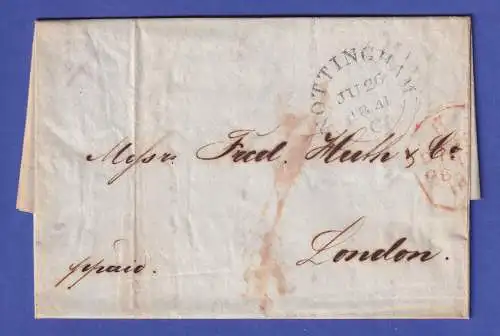 NOTTINGHAM
JU 26
1841
C
Messrs Fred. Huth & Co
London.
ppaid.